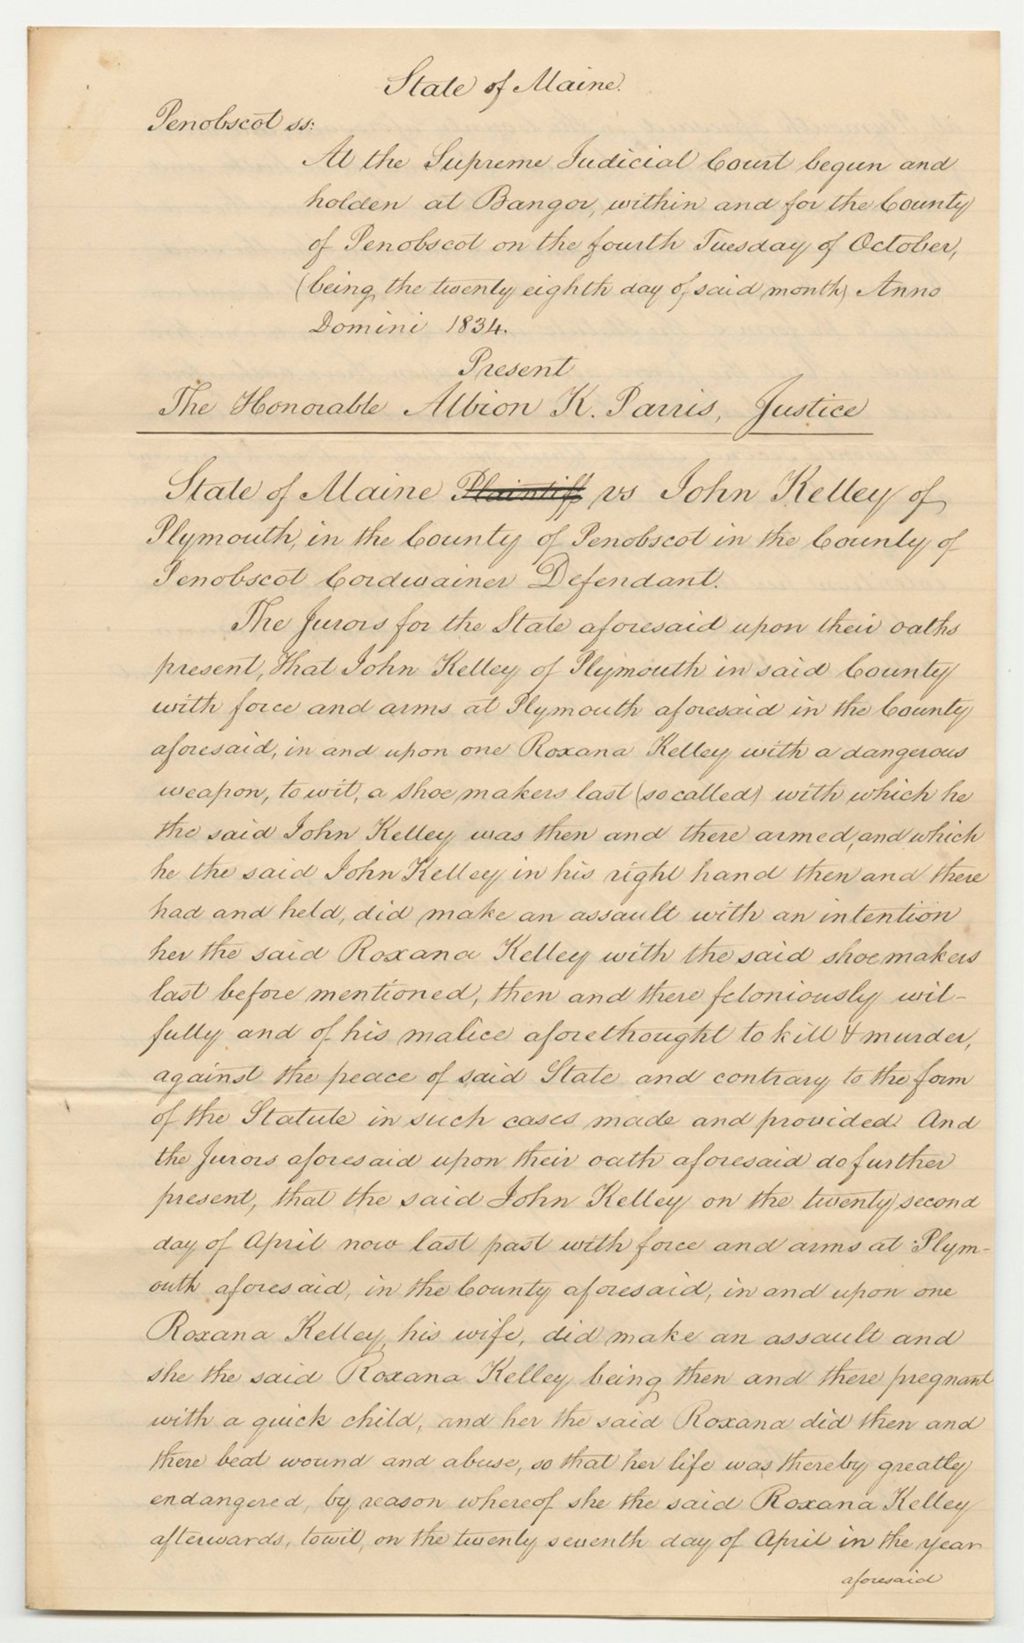 State of Maine.
Penobscot ss:
At the Supreme Judicial Court begun and
holden at Bangor, within and for the County
of Penobscot on the fourth Tuesday of October,
(being the twenty eighth day of said month) Anno
Domini 1834.
Present
The Honorable Albion K. Parris, Justice
State of Maine Plaintiff vs John Kelley of
Plymouth, in the County of Penobscot in the County of
Penobscot Cordwainer Defendant.
The Jurors for the State aforesaid upon their oaths
present, that John Kelley of Plymouth in said County
with force and arms at Plymouth aforesaid in the County
aforesaid, in and upon one Roxana Kelley with a dangerous
weapon, to wit, a shoemakers last (so called) with which he
the said John Kelley was then and there armed, and which
he the said John Kelley in his right hand then and there
had and held, did make an assault with an intention
her the said Roxana Kelley with the said shoemakers
last before mentioned, then and there feloniously wil-
fully and of his malice aforethought to kill & murder,
against the peace of said State and contrary to the form
of the Statute in such cases made and provided. And
the Jurors aforesaid upon their oath aforesaid do further
present, that the said John Kelley on the twenty second
day of April now last past with force and arms at Plym-
outh aforesaid, in the County aforesaid, in and upon one
Roxana Kelley, his wife, did make an assault and
she the said Roxana Kelley being then and there pregnant
with a quick child, and her the said Roxana did then and
there beat wound and abuse, so that her life was thereby greatly
endangered, by reason whereof she the said Roxana Kelley
afterwards, towit, on the twenty seventh day of April in the year
aforesaid